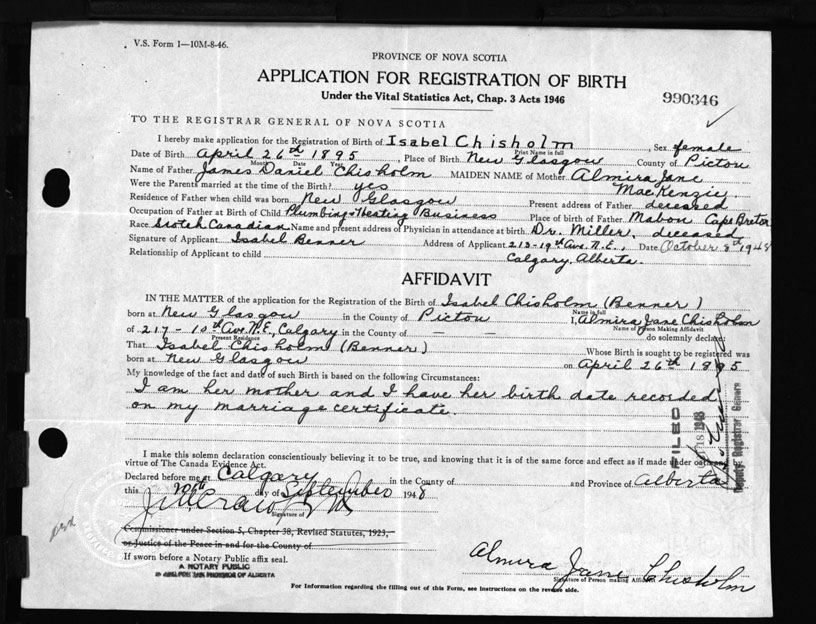 V.S. Form 1—10M-8-46.
PROVINCE OF NOVA SCOTIA
APPLICATION FOR REGISTRATION OF BIRTH
Under the Vital Statistics Act, Chap. 3 Acts 1946
990346
TO THE REGISTRAR GENERAL OF NOVA SCOTIA
I hereby make application for the Registration of Birth of Isabel Chisholm, Sex female
Print Name in full
Date of Birth April 26th 1895, Place of Birth New Glasgow County of Pictou
Month Date Year
Name of Father James Daniel Chisholm MAIDEN NAME of Mother Almira Jane
MacKenzie
Were the Parents married at the time of the Birth? yes
Residence of Father when child was born New Glasgow Present address of Father deceased
Occupation of Father at Birth of Child Plumbing & Heating Business Place of birth of Father Mabou Cape Breton
Race Scotch Canadian Name and present address of Physician in attendance at birth Dr. Miller, deceased
Signature of Applicant Isabel Benner Address of Applicant 213-19th Ave. N.E., Date October 8th 1948
Relationship of Applicant to child Calgary, Alberta.
AFFIDAVIT
IN THE MATTER of the application for the Registration of the Birth of Isabel Chisholm (Benner)
Name in full
born at New Glasgow in the County of Pictou I, Almira Jane Chisholm
Name of Person Making Affidavit
of 217-10th Ave. N.E., Calgary in the County of — — do solemnly declare:
Present Residence
That Isabel Chisholm (Benner) Whose Birth is sought to be registered was
born at New Glasgow on April 26th 1895
My knowledge of the fact and date of such Birth is based on the following Circumstances:
I am her mother and I have her birth date recorded
on my marriage certificate.
FILED
18 1948
Deputy Registrar General
I make this solemn declaration conscientiously believing it to be true, and knowing that it is of the same force and effect as if made under oath
virtue of The Canada Evidence Act.
Declared before me at Calgary in the County of and Province of Alberta
this day of September 1948
Signature of
Commissioner under Section 5, Chapter 38, Revised Statutes, 1923,
or Justice of the Peace in and for the County of
If sworn before a Notary Public affix seal.
A NOTARY PUBLIC
IN AND FOR THE PROVINCE OF ALBERTA
Almira Jane Chisholm
Signature of Person making Affidavit
For Information regarding the filling out of this Form, see instructions on the reverse side.